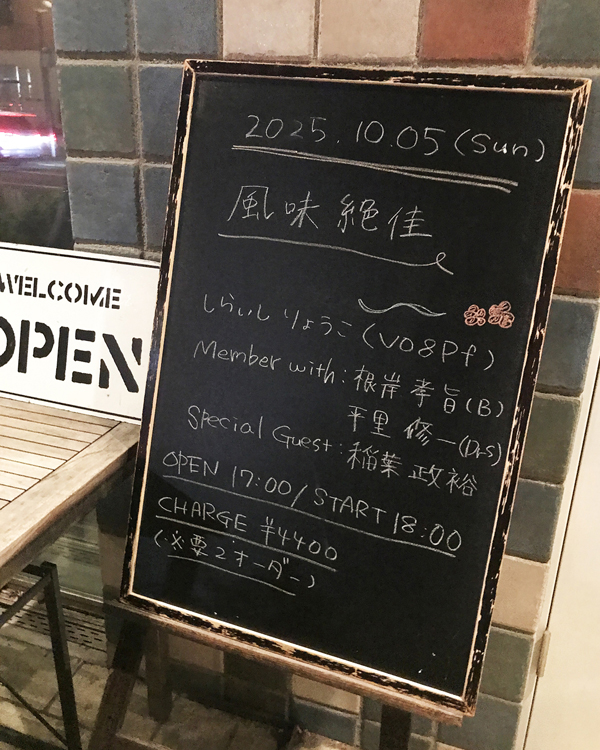 2025.10.05(Sun)
風味絶佳
しらいしりょうこ(Vo&Pf)
Member with:根岸孝旨(B)
平里修一(Drs)
Special Guest:稲葉政裕
OPEN 17:00/START 18:00
CHARGE ¥4400
(※要2オーダー)
WELCOME
OPEN